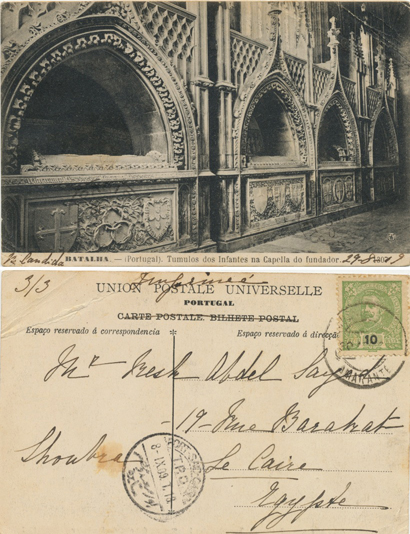 BATALHA. — (Portugal). Tumulos dos Infantes na Capella do fundador.
3/3
UNION POSTALE UNIVERSELLE
PORTUGAL
CARTE POSTALE. BILHETE POSTAL
Espaço reservado á correspondencia
Espaço reservado á direcção
10
Mr. Wesh Abdel Sayed
19 Rue Barakat
Shoubra
Le Caire
Egypte